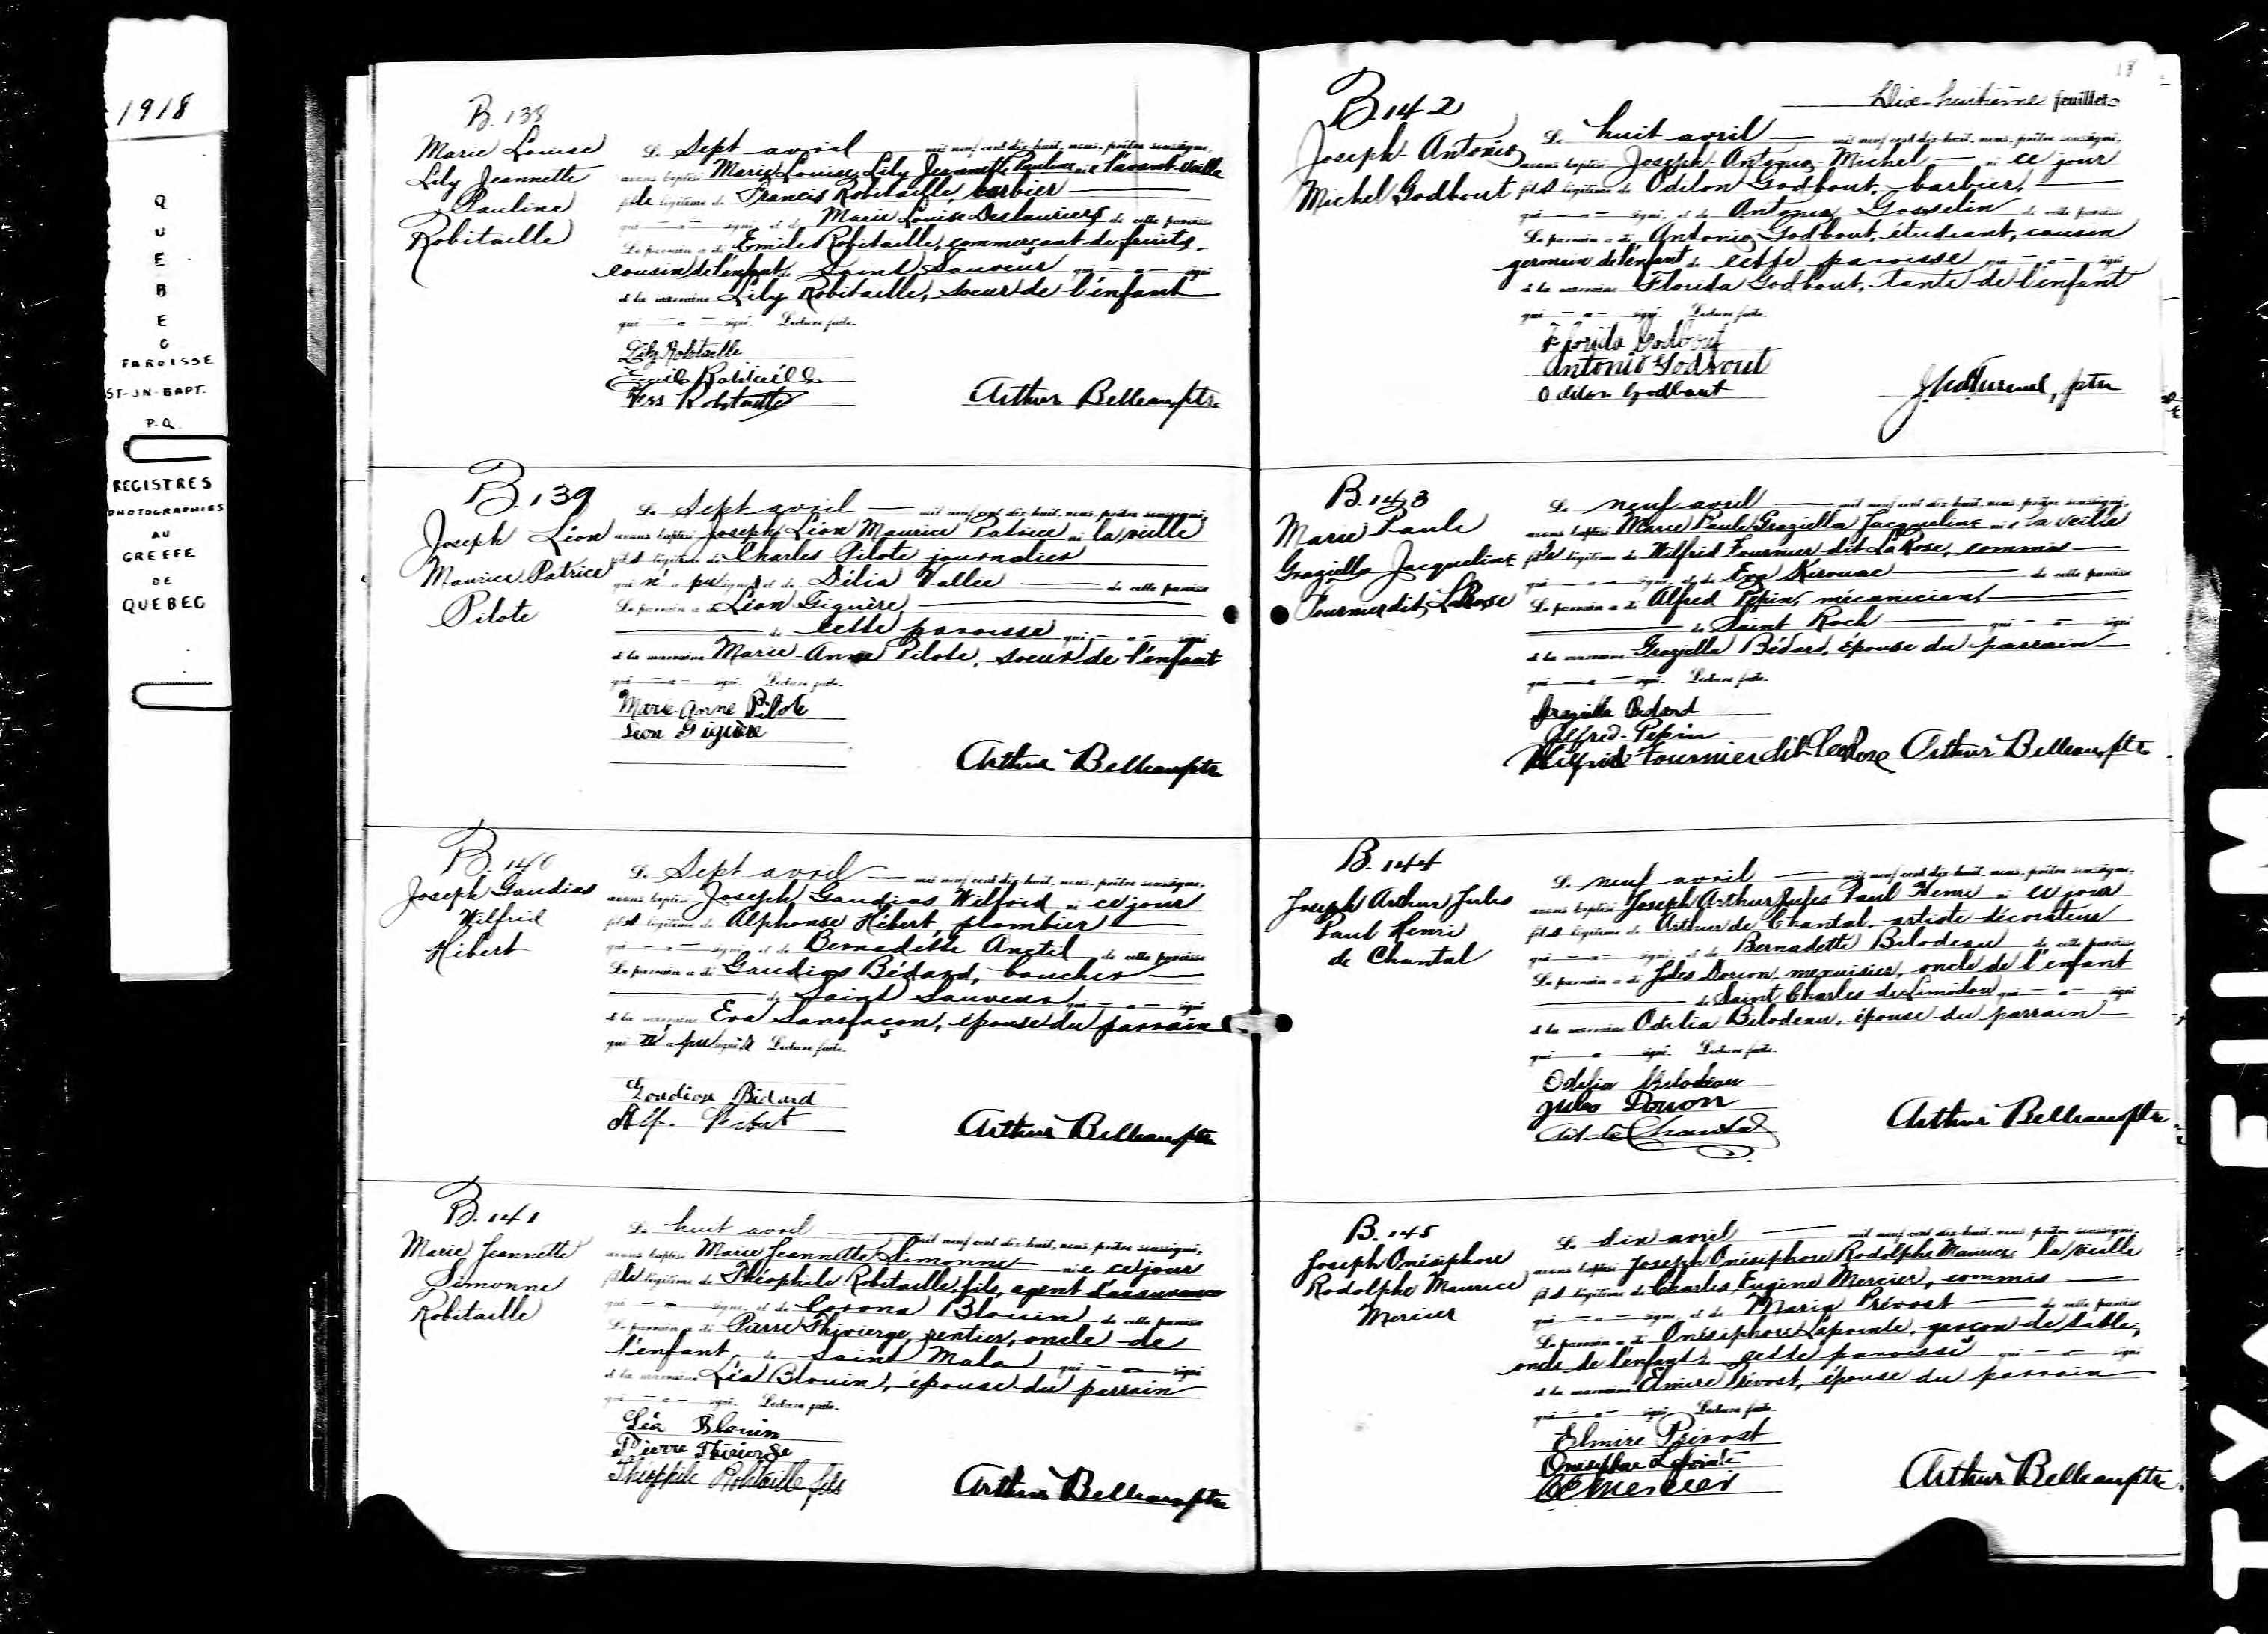 1918
QUEBEC
PAROISSE
ST-JN-BAPT.
P.Q.
REGISTRES
PHOTOGRAPHIES
AU
GREFFE
DE
QUEBEC
B. 138
Marie Louise
Lily Jeannette
Pauline
Robitaille
Le Sept avril — mil neuf cent dix-huit, nous, prêtre soussigné,
avons baptisé Marie Louise Lily Jeannette Pauline née l'avant-veille
fille légitime de Francis Robitaille, barbier —
qui — a — signé, et de Marie Louise Deslauriers de cette paroisse
Le parrain a été Emile Robitaille, commerçant de fruits,
cousin de l'enfant de Saint Sauveur qui — a — signé
et la marraine Lily Robitaille, soeur de l'enfant
qui — a — signé. Lecture faite.
Lily Robitaille
Emile Robitaille
Frs Robitaille
Arthur Belleau ptre
B. 139
Joseph Léon
Maurice Patrice
Pilote
Le Sept avril — mil neuf cent dix-huit, nous, prêtre soussigné,
avons baptisé Joseph Léon Maurice Patrice né la veille
fils légitime de Charles Pilote journalier
qui n'a pu signer, et de Délia Vallée — de cette paroisse
Le parrain a été Léon Giguère —
— de cette paroisse qui — a — signé
et la marraine Marie-Anne Pilote, soeur de l'enfant
qui — a — signé. Lecture faite.
Marie-Anne Pilote
Léon Giguère
Arthur Belleau ptre
B. 140
Joseph Gaudias
Wilfrid
Hébert
Le Sept avril — mil neuf cent dix-huit, nous, prêtre soussigné,
avons baptisé Joseph Gaudias Wilfrid né ce jour
fils légitime de Alphonse Hébert, plombier —
qui — a — signé, et de Bernadette Anctil de cette paroisse
Le parrain a été Gaudias Bédard, boucher —
— de Saint Sauveur qui — a — signé
et la marraine Eva Sansfaçon, épouse du parrain
qui n'a pu signer. Lecture faite.
Gaudias Bédard
Alp. Hébert
Arthur Belleau ptre
B. 141
Marie Jeannette
Simonne
Robitaille
Le huit avril — mil neuf cent dix-huit, nous, prêtre soussigné,
avons baptisé Marie Jeannette Simonne — née ce jour
fille légitime de Théophile Robitaille fils, agent d'assurance
qui — a — signé, et de Corona Blouin de cette paroisse
Le parrain a été Pierre Thivierge, rentier, oncle de
l'enfant, de Saint Malo qui — a — signé
et la marraine Léa Blouin, épouse du parrain
qui — a — signé. Lecture faite.
Léa Blouin
Pierre Thivierge
Théophile Robitaille fils
Arthur Belleau ptre
18
Dix-huitième feuillet
B. 142
Joseph-Antonio
Michel Godbout
Le huit avril — mil neuf cent dix-huit, nous, prêtre soussigné,
avons baptisé Joseph-Antonio-Michel — né ce jour
fils légitime de Odilon Godbout, barbier, —
qui — a — signé, et de Antonia Gosselin de cette paroisse
Le parrain a été Antonio Godbout, étudiant, cousin
germain de l'enfant de cette paroisse qui — a — signé
et la marraine Florida Godbout, tante de l'enfant
qui — a — signé. Lecture faite.
Florida Godbout
Antonio Godbout
Odilon Godbout
ptre
B. 143
Marie Paule
Graziella Jacqueline
Fournier dit LaRose
Le neuf avril — mil neuf cent dix-huit, nous, prêtre soussigné,
avons baptisé Marie Paule Graziella Jacqueline née la veille
fille légitime de Wilfrid Fournier dit LaRose, commis —
qui — a — signé, et de Eva Kirouac — de cette paroisse
Le parrain a été Alfred Pépin, mécanicien, —
— de Saint Roch — qui — a — signé
et la marraine Graziella Bédard, épouse du parrain —
qui — a — signé. Lecture faite.
Graziella Bedard
Alfred-Pépin
Wilfrid Fournier dit LaRose Arthur Belleau ptre
B. 144
Joseph Arthur Jules
Paul Henri
de Chantal
Le neuf avril — mil neuf cent dix-huit, nous, prêtre soussigné,
avons baptisé Joseph Arthur Jules Paul Henri né ce jour
fils légitime de Arthur de Chantal, artiste décorateur
qui — a — signé, et de Bernadette Bilodeau de cette paroisse
Le parrain a été Jules Dorion, menuisier, oncle de l'enfant
— de Saint Charles de Limoilou qui — a — signé
et la marraine Odelia Bilodeau, épouse du parrain —
qui — a — signé. Lecture faite.
Odelia Bilodeau
Jules Dorion
Art de Chantal
Arthur Belleau ptre
B. 145
Joseph Onésiphore
Rodolphe Maurice
Mercier
Le dix avril — mil neuf cent dix-huit, nous, prêtre soussigné,
avons baptisé Joseph Onésiphore Rodolphe Maurice la veille
fils légitime de Charles Eugène Mercier, commis —
qui — a — signé, et de Maria Prévost — de cette paroisse
Le parrain a été Onésiphore Lapointe, garçon de table,
oncle de l'enfant de cette paroisse qui — a — signé
et la marraine Elmire Prévost, épouse du parrain
qui — a — signé. Lecture faite.
Elmire Prévost
Onésiphore Lapointe
CEMercier
Arthur Belleau ptre